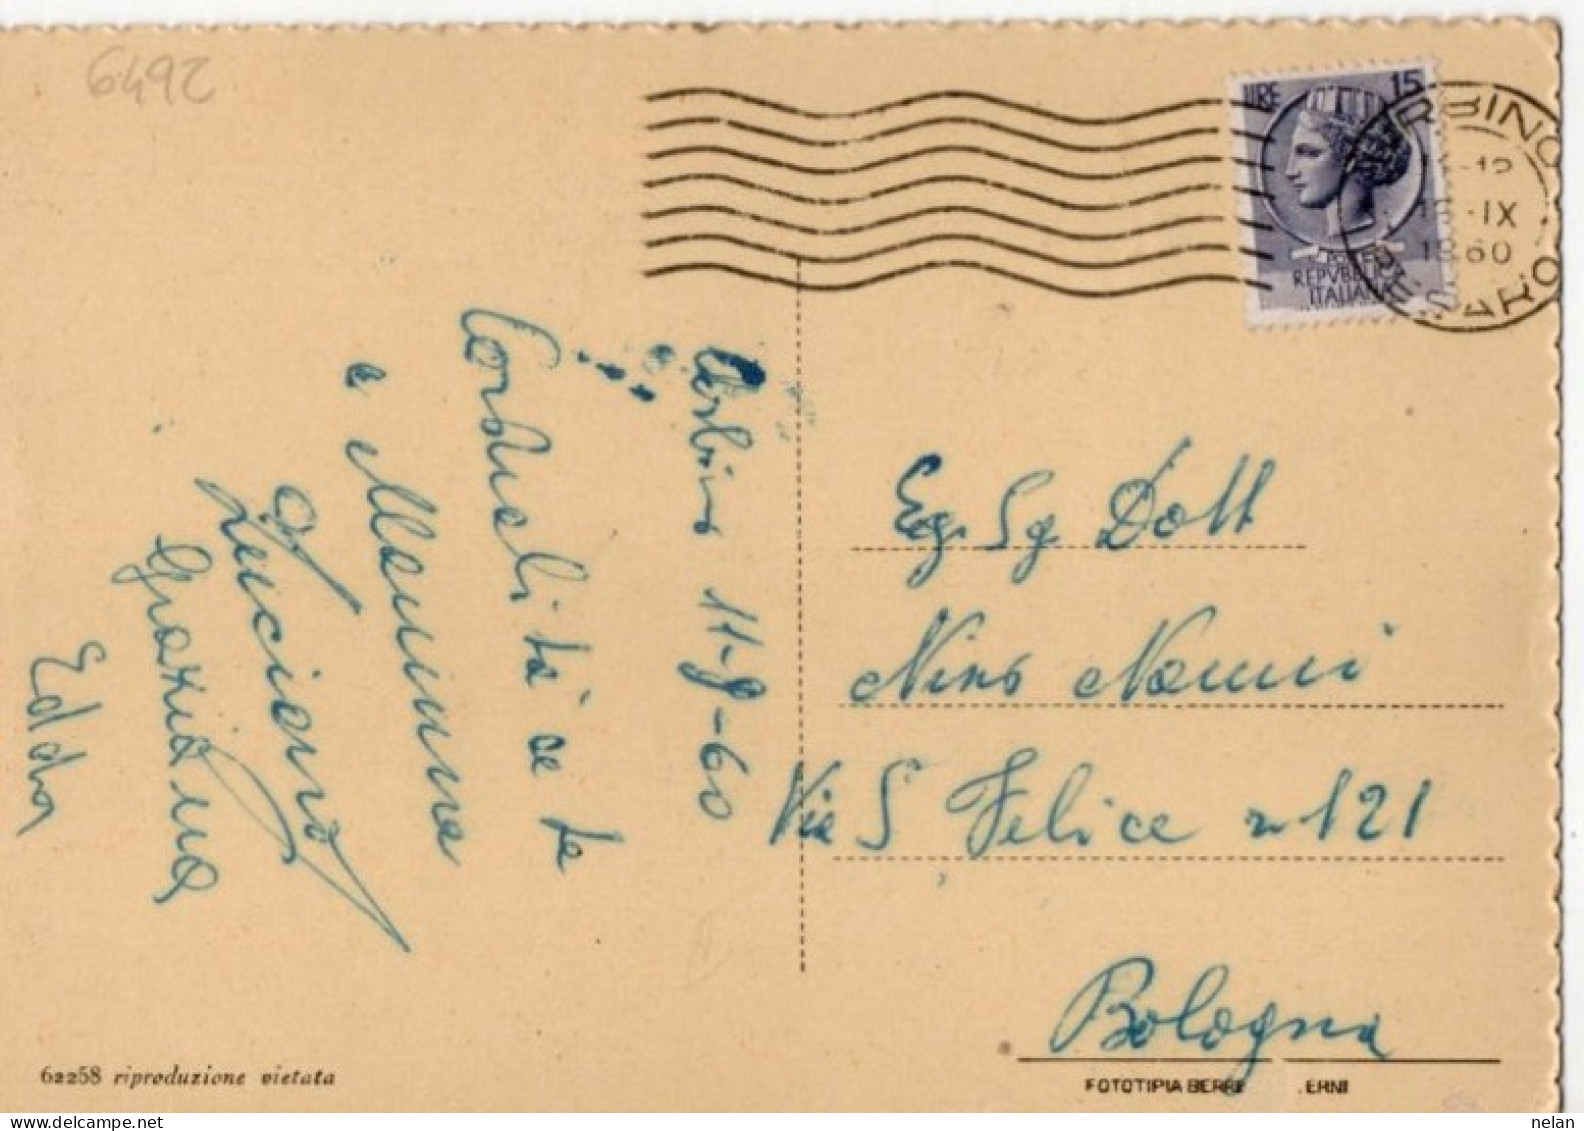 6492
LIRE 15
POSTE
REPVBBLICA
ITALIANA
URBINO
-12
-IX
1960
PESARO
Urbino 11-9-60
Cordialità a te
e Mamma
Luciano
Graziana
Edda
Eg. Sg. Dott
Nino Nanni
Via S Felice n 121
Bologna
62258 riproduzione vietata
FOTOTIPIA BERRE ERNI
nelan